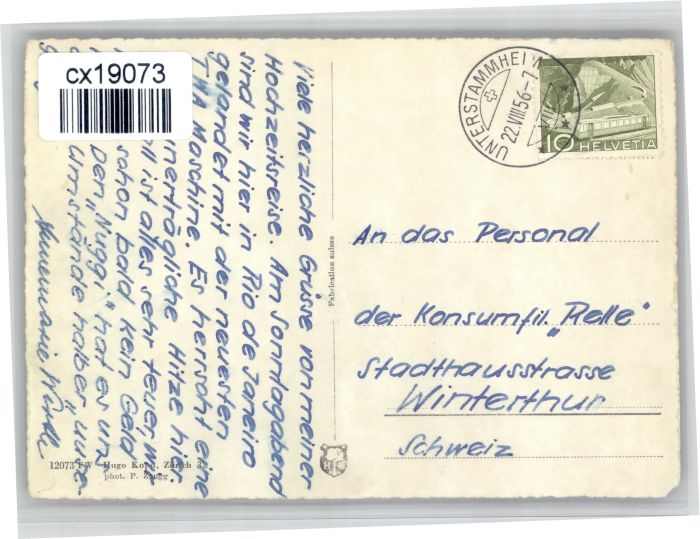 cx19073
Viele herzliche Grüsse von meiner
Hochzeitsreise. Am Sonntagabend
sind wir hier in Rio de Janeiro
gelandet mit der neuesten
Maschine. Es herrscht eine
unerträgliche Hitze hier.
ist alles sehr teuer, wir
schon bald kein Geld
Den "Nuggi" hat es um-
Umstände halber
Annemarie
Fabrication suisse
12073 FW Hugo Kopp, Zürich 32
phot. P. Zaugg
UNTERSTAMMHEIM
22.VIII.56-7
10 HELVETIA
An das Personal
der Konsumfil. "Relle"
Stadthausstrasse
Winterthur
Schweiz